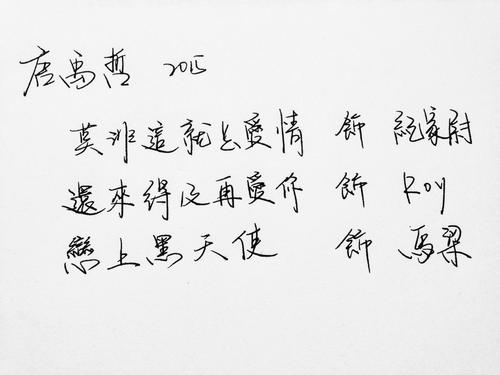 唐禹哲 2015
莫非這就是愛情 飾 紀家尉
還來得及再愛你 飾 Roy
戀上黑天使 飾 馬梁